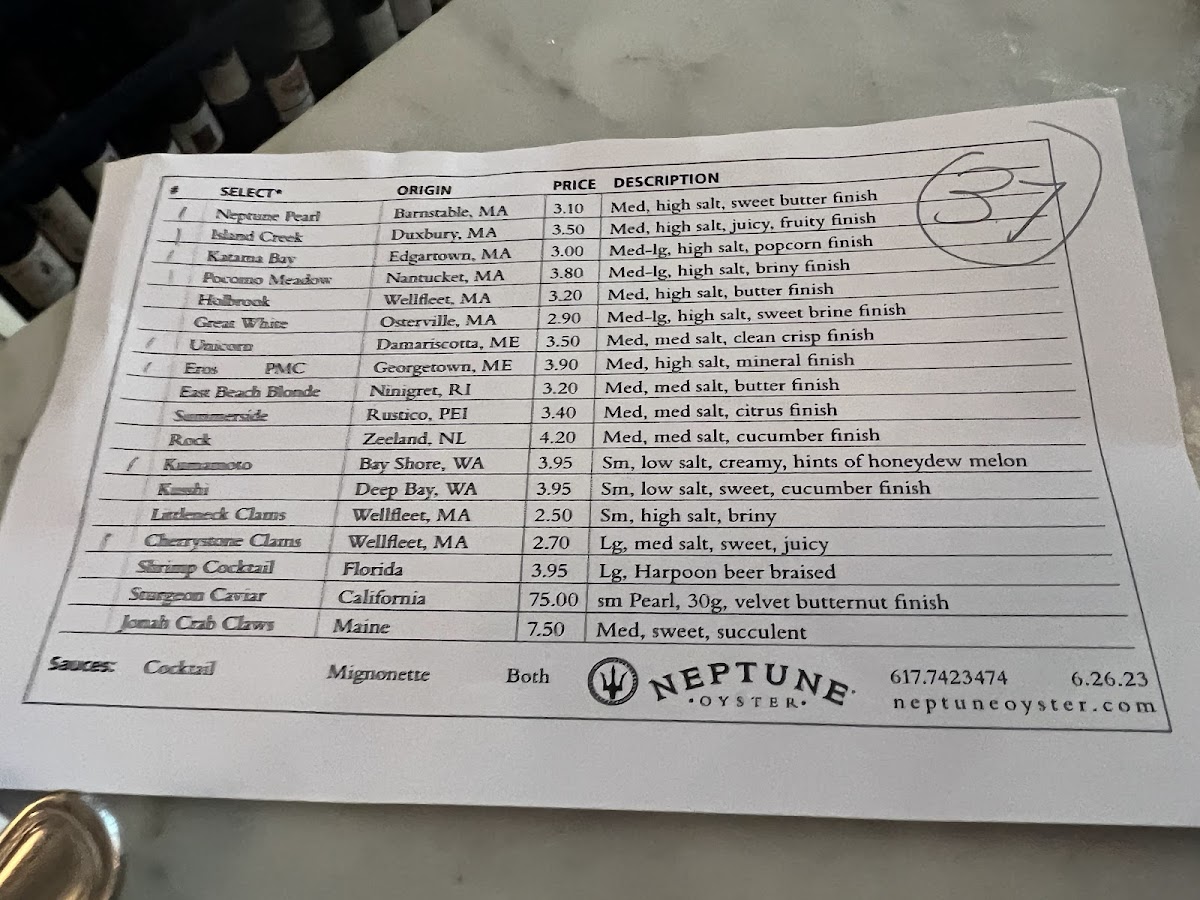 # SELECT* ORIGIN PRICE DESCRIPTION
/ Neptune Pearl Barnstable, MA 3.10 Med, high salt, sweet butter finish
/ Island Creek Duxbury, MA 3.50 Med, high salt, juicy, fruity finish
/ Katama Bay Edgartown, MA 3.00 Med-lg, high salt, popcorn finish
/ Pocomo Meadow Nantucket, MA 3.80 Med-lg, high salt, briny finish
Holbrook Wellfleet, MA 3.20 Med, high salt, butter finish
Great White Osterville, MA 2.90 Med-lg, high salt, sweet brine finish
/ Unicorn Damariscotta, ME 3.50 Med, med salt, clean crisp finish
/ Eros PMC Georgetown, ME 3.90 Med, high salt, mineral finish
East Beach Blonde Ninigret, RI 3.20 Med, med salt, butter finish
Summerside Rustico, PEI 3.40 Med, med salt, citrus finish
Rock Zeeland, NL 4.20 Med, med salt, cucumber finish
/ Kumamoto Bay Shore, WA 3.95 Sm, low salt, creamy, hints of honeydew melon
Kusshi Deep Bay, WA 3.95 Sm, low salt, sweet, cucumber finish
Littleneck Clams Wellfleet, MA 2.50 Sm, high salt, briny
/ Cherrystone Clams Wellfleet, MA 2.70 Lg, med salt, sweet, juicy
Shrimp Cocktail Florida 3.95 Lg, Harpoon beer braised
Sturgeon Caviar California 75.00 sm Pearl, 30g, velvet butternut finish
Jonah Crab Claws Maine 7.50 Med, sweet, succulent
Sauces: Cocktail Mignonette Both
NEPTUNE
•OYSTER•
617.7423474 6.26.23
neptuneoyster.com
37